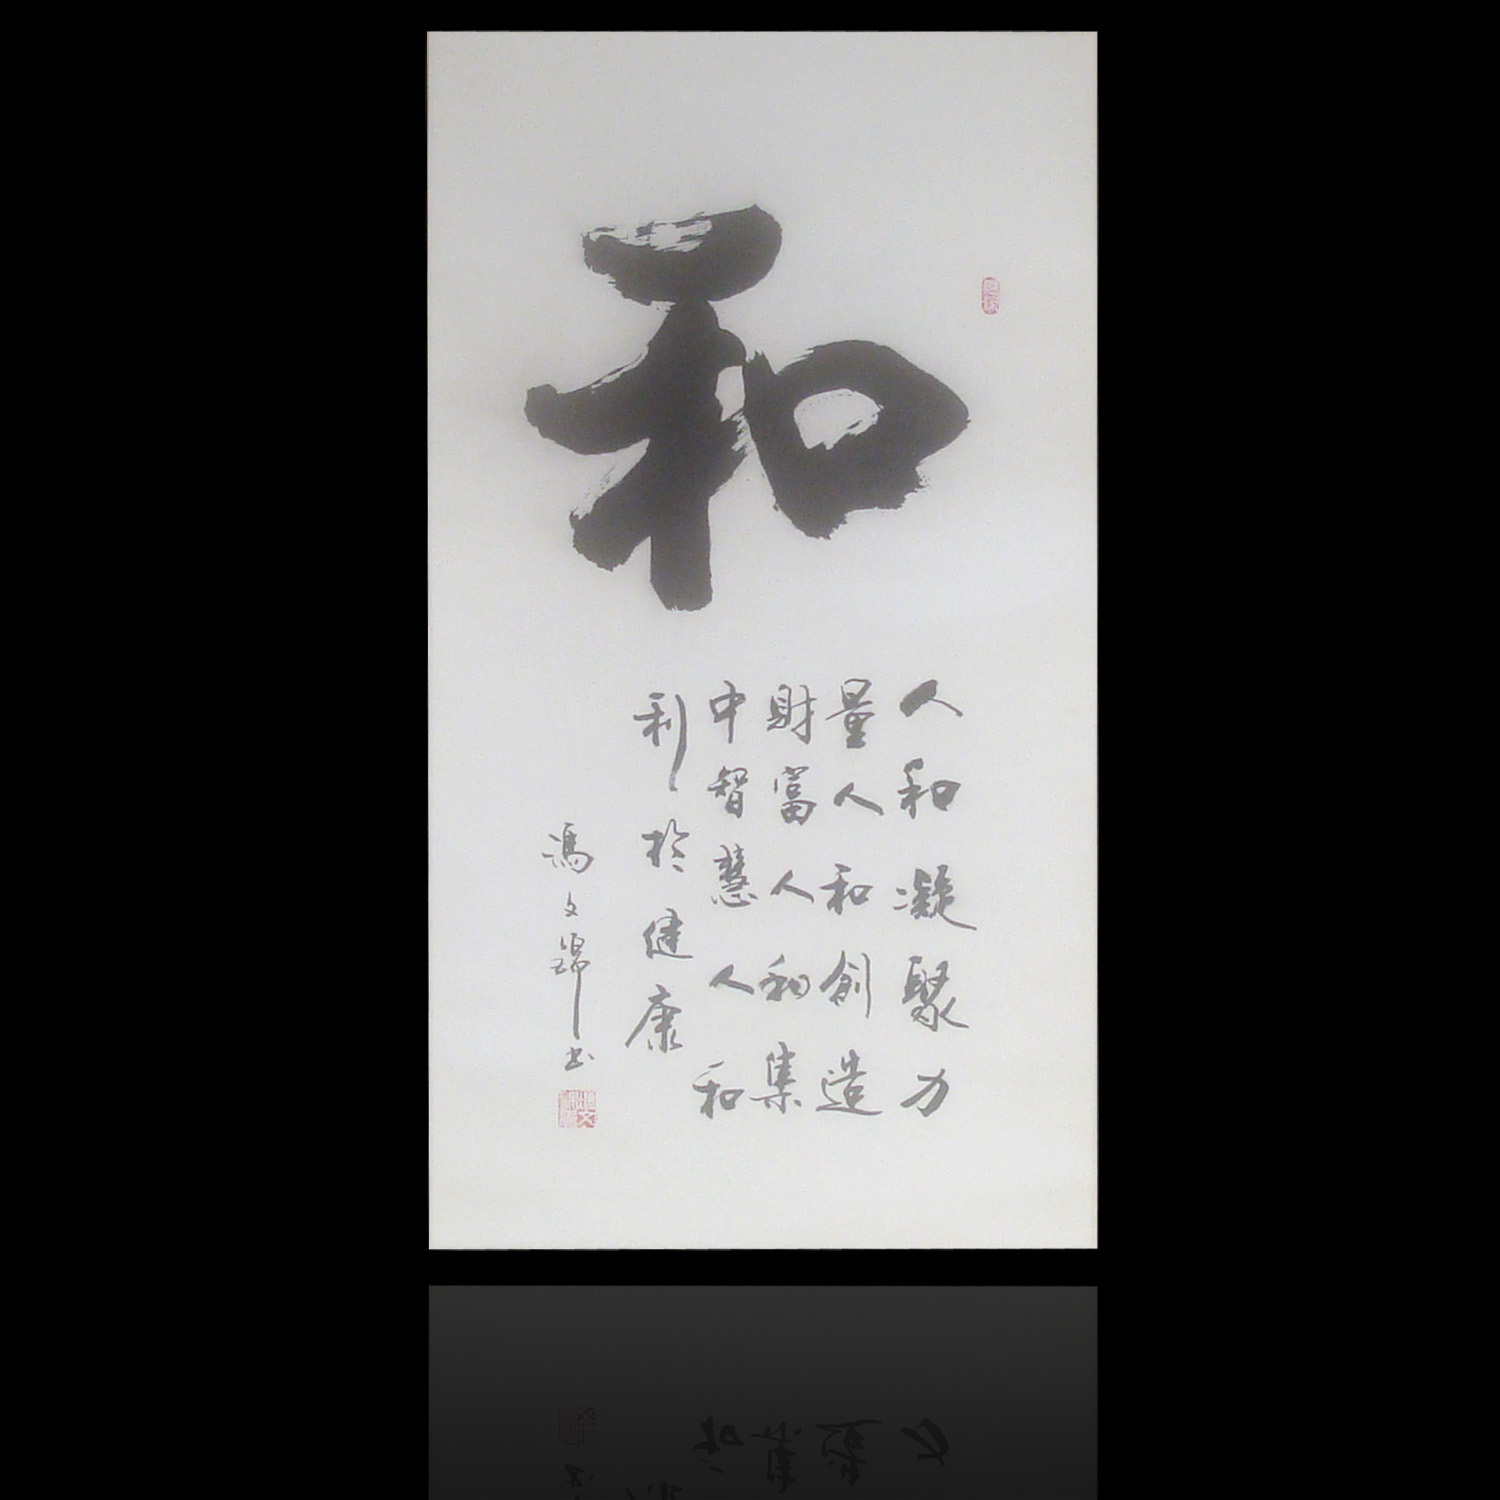 和
人和凝聚力
量人和創造
財富人和集
中智慧人和
利於健康
馮文瑞书